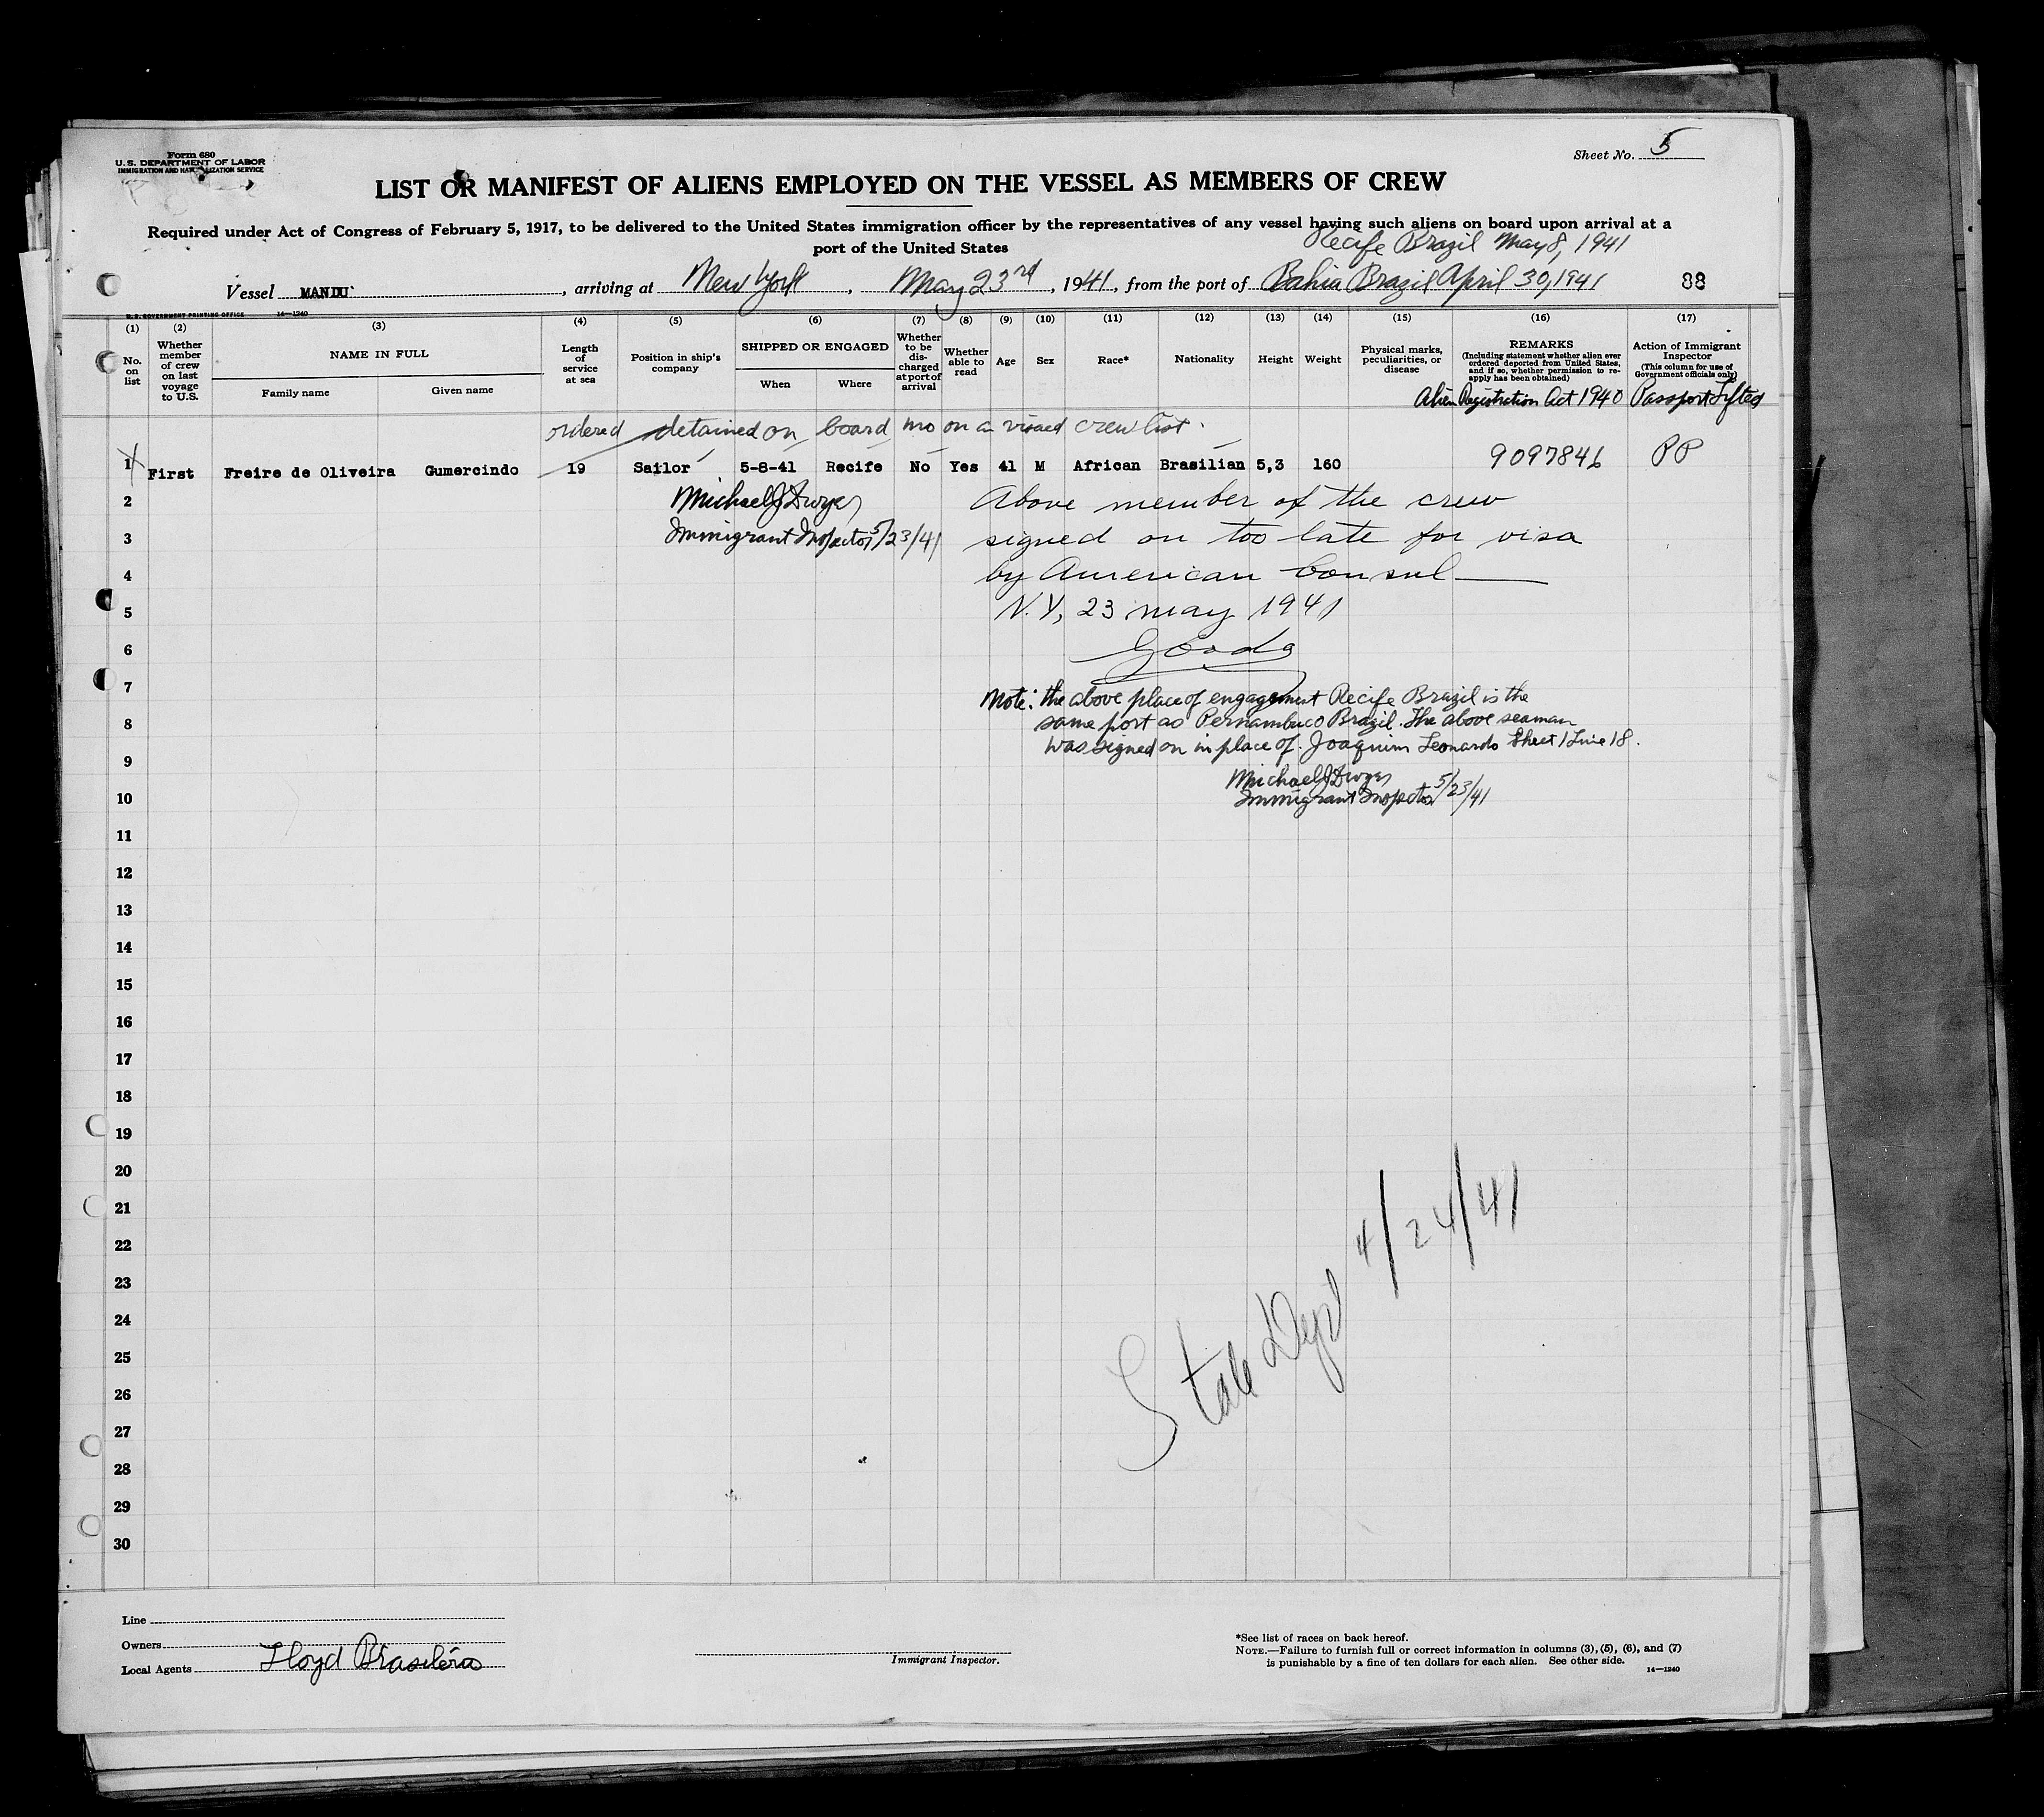 Form 680
U.S. DEPARTMENT OF LABOR
IMMIGRATION AND NATURALIZATION SERVICE
Sheet No. 5
LIST OR MANIFEST OF ALIENS EMPLOYED ON THE VESSEL AS MEMBERS OF CREW
Required under Act of Congress of February 5, 1917, to be delivered to the United States immigration officer by the representatives of any vessel having such aliens on board upon arrival at a
port of the United States
Recife Brazil May 8, 1941
Vessel MANDU, arriving at New York, May 23rd, 1941, from the port of Bahia Brazil April 30, 1941
88
U.S. GOVERNMENT PRINTING OFFICE 14—1240
(1) (2) (3) (4) (5) (6) (7) (8) (9) (10) (11) (12) (13) (14) (15) (16) (17)
No. on list
Whether member of crew on last voyage to U.S.
NAME IN FULL
Family name
Given name
Length of service at sea
Position in ship's company
SHIPPED OR ENGAGED
When
Where
Whether to be discharged at port of arrival
Whether able to read
Age
Sex
Race*
Nationality
Height
Weight
Physical marks, peculiarities, or disease
REMARKS
(Including statement whether alien ever ordered deported from United States, and if so, whether permission to reapply has been obtained)
Action of Immigrant Inspector
(This column for use of Government officials only)
Alien Registration Act 1940 Passport Lifted
ordered detained on board no on a visaed crew list.
1 First Freire de Oliveira Gumercindo 19 Sailor 5-8-41 Recife No Yes 41 M African Brasilian 5,3 160 9097846 PP
2 Michael J Dwyer Above member of the crew
3 Immigrant Inspector 5/23/41 signed on too late for visa
4 by American Consul
5 N.Y, 23 may 1941
6
7 Note: the above place of engagement Recife Brazil is the
8 same port as Pernambuco Brazil. The above seaman
was signed on in place of Joaquim Leonardo Sheet 1 Line 18.
9
Michael J Dwyer
10 Immigrant Inspector 5/23/41
11
12
13
14
15
16
17
18
19
20
21
22
23
24
25
26
27
28
29
30
State Dept 4/24/41
Line
Owners
Local Agents Lloyd Brasileiro
Immigrant Inspector.
*See list of races on back hereof.
NOTE.—Failure to furnish full or correct information in columns (3), (5), (6), and (7)
is punishable by a fine of ten dollars for each alien. See other side.
14—1240